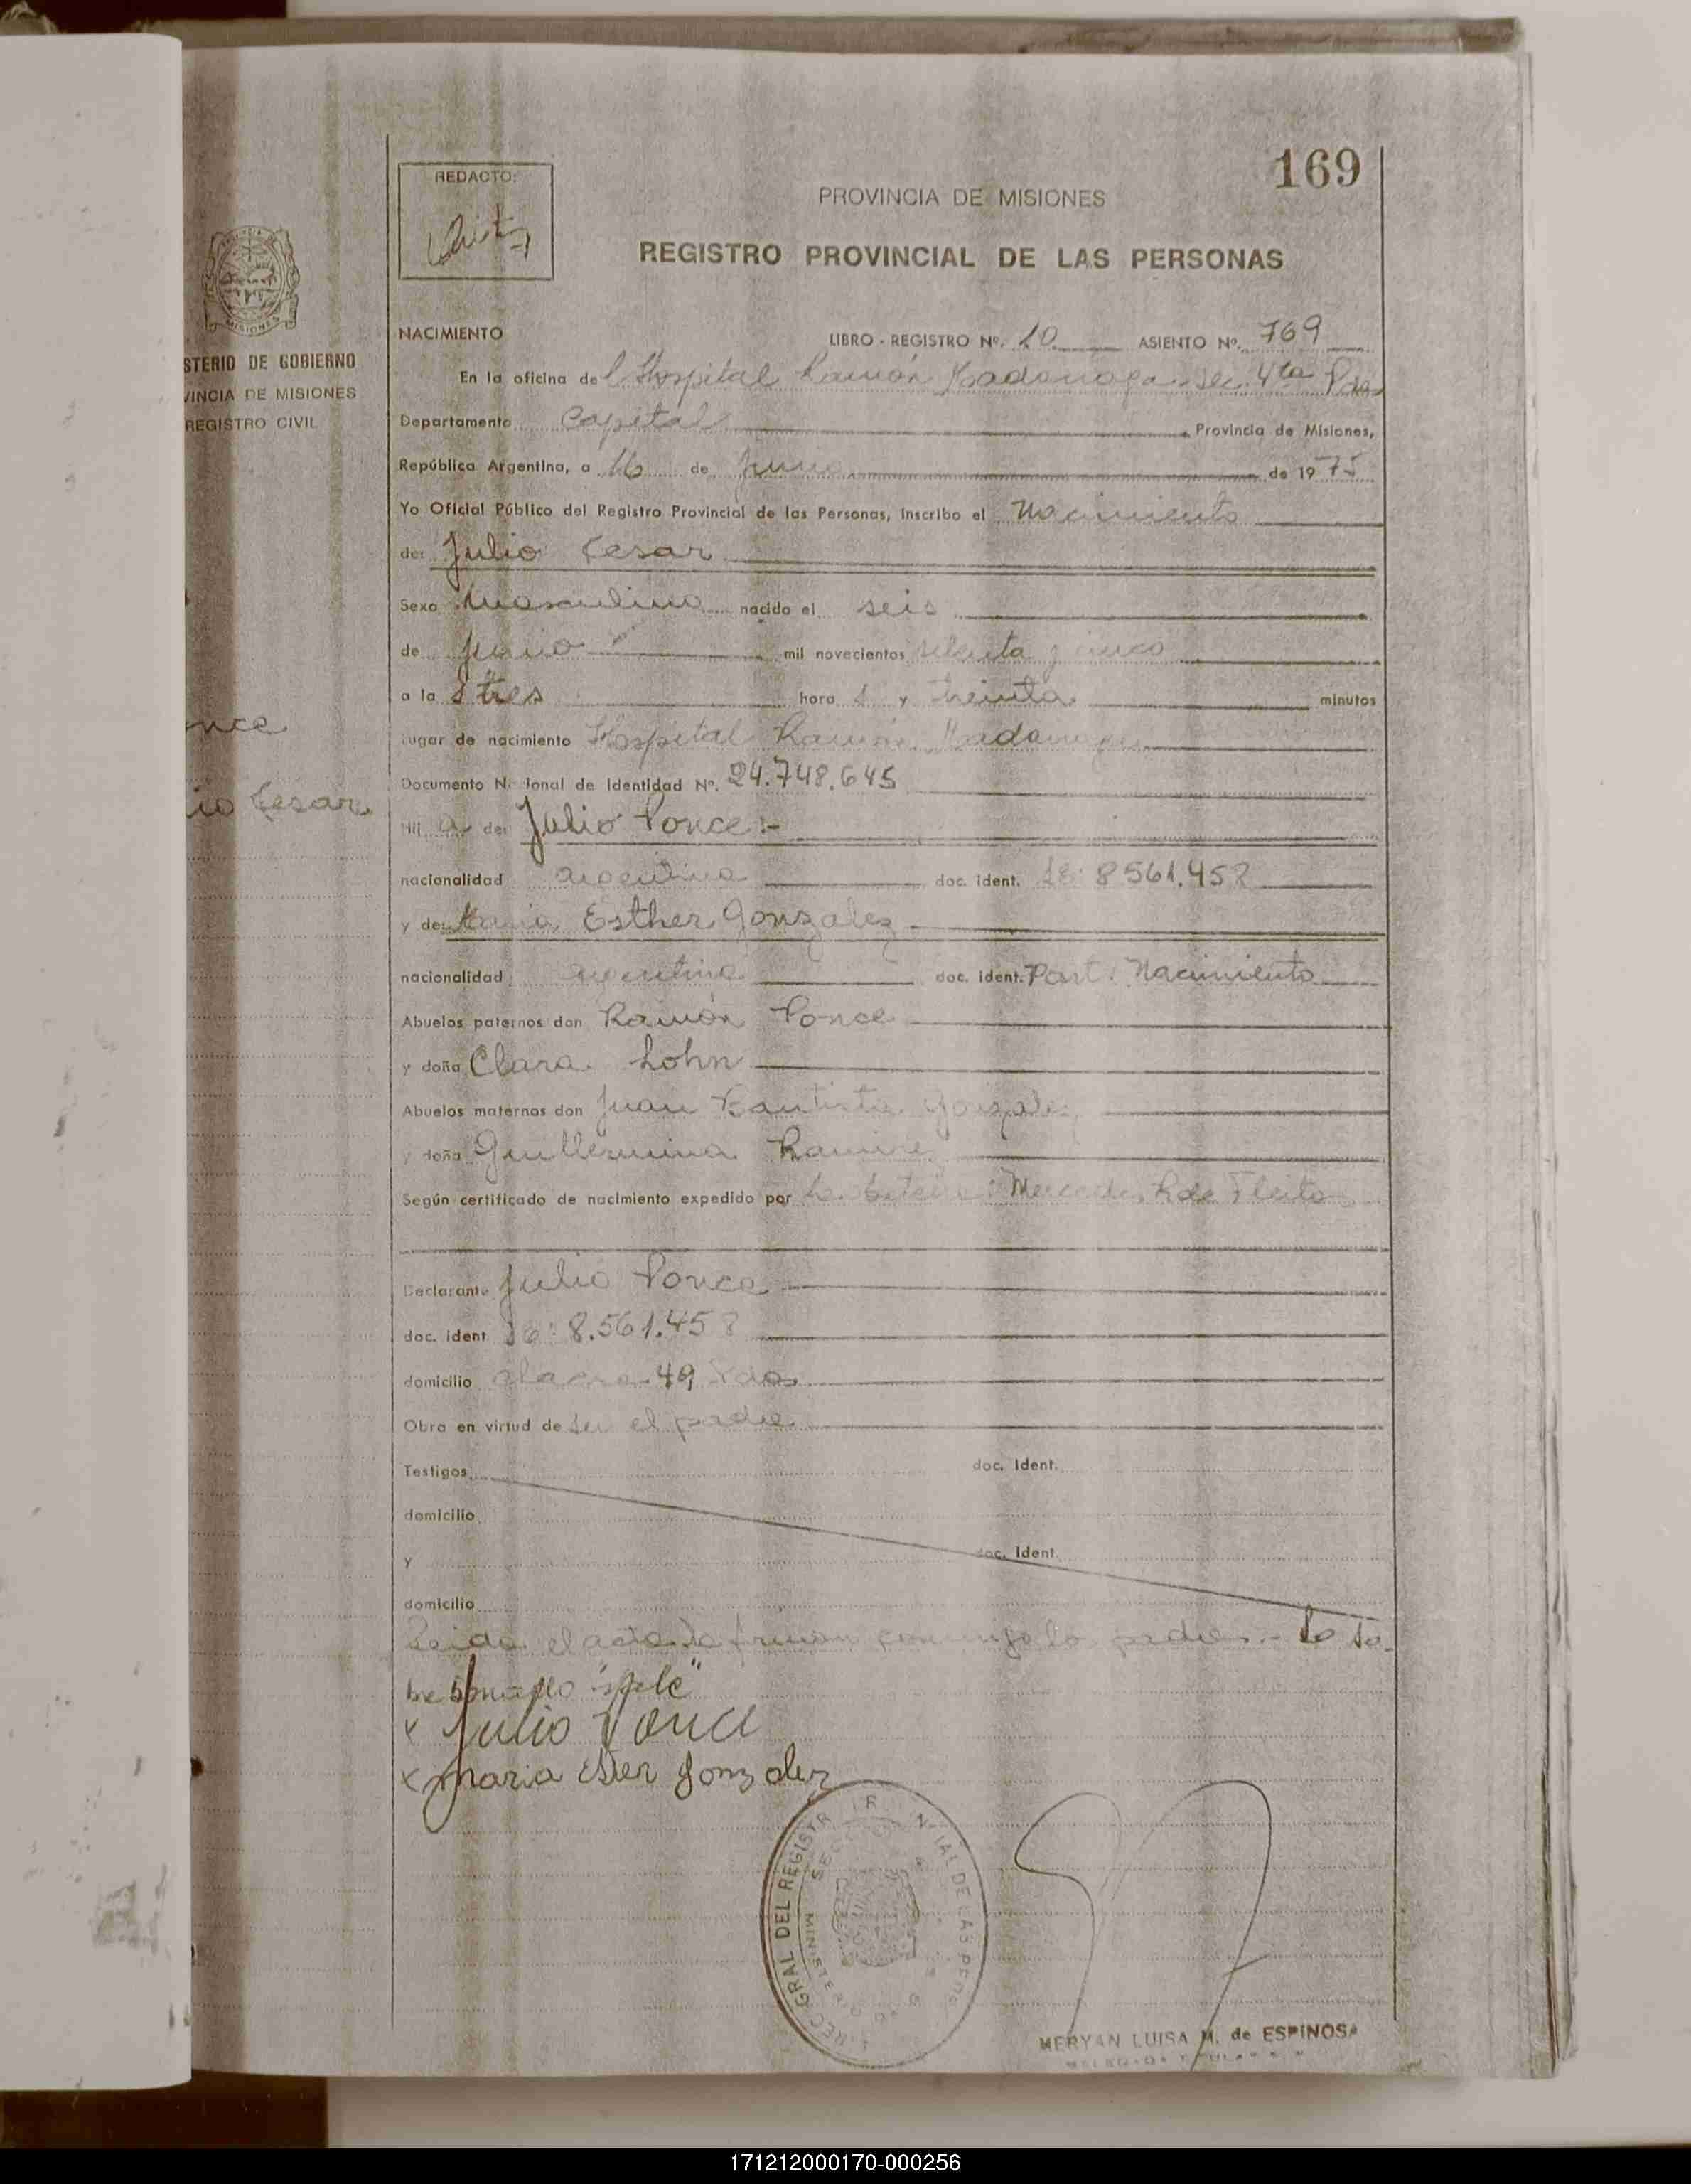 169
REDACTO:
PROVINCIA DE MISIONES
REGISTRO PROVINCIAL DE LAS PERSONAS
STERIO DE GOBIERNO
VINCIA DE MISIONES
REGISTRO CIVIL
MISIONES
NACIMIENTO LIBRO - REGISTRO Nº. 10 ASIENTO Nº. 769
En la oficina del Hospital Ramón Madariaga Sec. 4ta Pdas
Departamento Capital Provincia de Misiones,
República Argentina, a 16 de Junio de 1975
Yo Oficial Público del Registro Provincial de las Personas, inscribo el Nacimiento
de: Julio Cesar
Sexo Masculino nacido el seis
de junio mil novecientos setenta y cinco
a las tres hora s y treinta minutos
Lugar de nacimiento Hospital Ramón Madariaga
nce
Documento Nacional de Identidad Nº. 24.748.645
io Cesar
Hijo de: Julio Ponce:-
nacionalidad argentina doc. ident. 8561.458
y de: Maria Esther Gonzalez
nacionalidad argentina doc. ident. Part. Nacimiento
Abuelos paternos don Ramón Ponce
y doña Clara Lohn
Abuelos maternos don Juan Bautista Gonzalez
y doña Guillermina Ramire
Según certificado de nacimiento expedido por Mercedes R de Fleita
Declarante Julio Ponce
doc. ident 8.561.458
domicilio chacra 49 Pdas
Obra en virtud de ser el padre
Testigos doc. ident.
domicilio
y doc. ident.
domicilio
Leida el acta la firman conmigo los padres.- Lo so-
bre borrado
x Julio Ponce
x maria Ester gonzalez
MERYAN LUISA M. de ESPINOSA
171212000170-000256